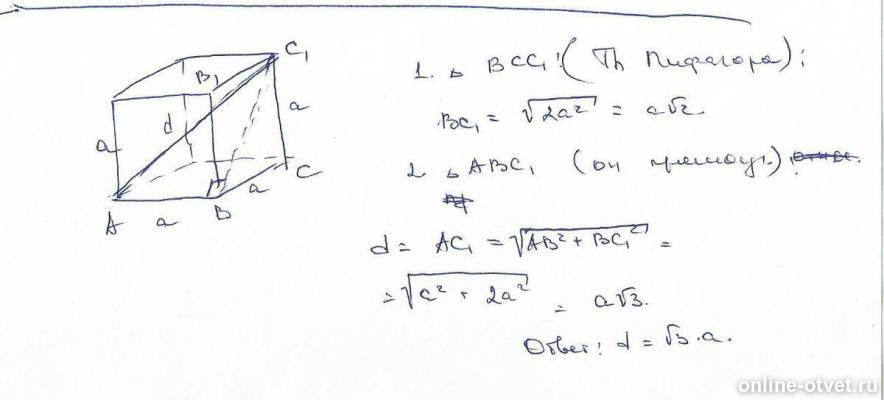 C₁
B₁
a
d
a
C
a
A
a
B
1. △ BCC₁: (Th Пифагора):
BC₁ = √2a² = a√2
2. △ ABC₁ (он прямоуг.)
d = AC₁ = √AB² + BC₁² =
= √a² + 2a² = a√3.
Ответ: d = √3·a.
online-otvet.ru